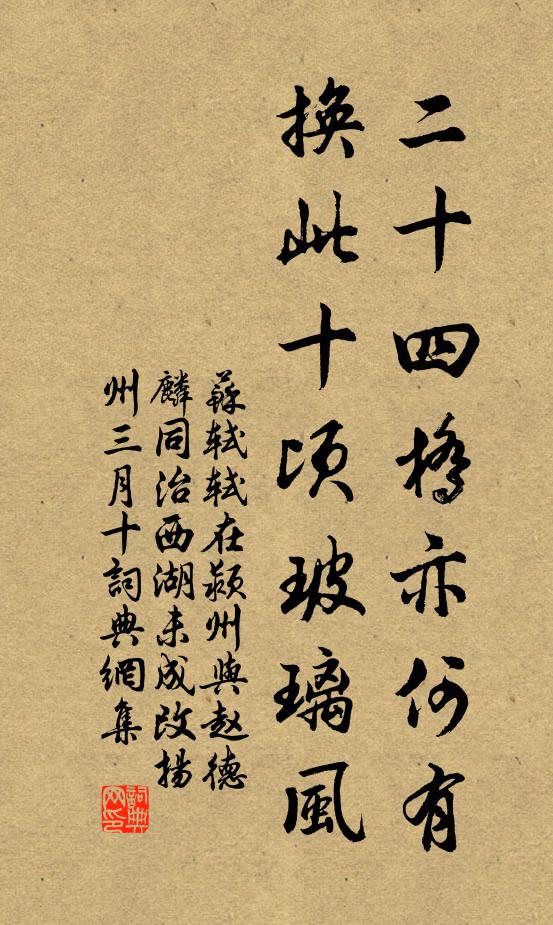 二十四橋亦何有
換此十頃玻璃風
蘇軾軾在潁州與赵德
麟同治西湖未成改揚
州三月十詞典網集
詞典網印